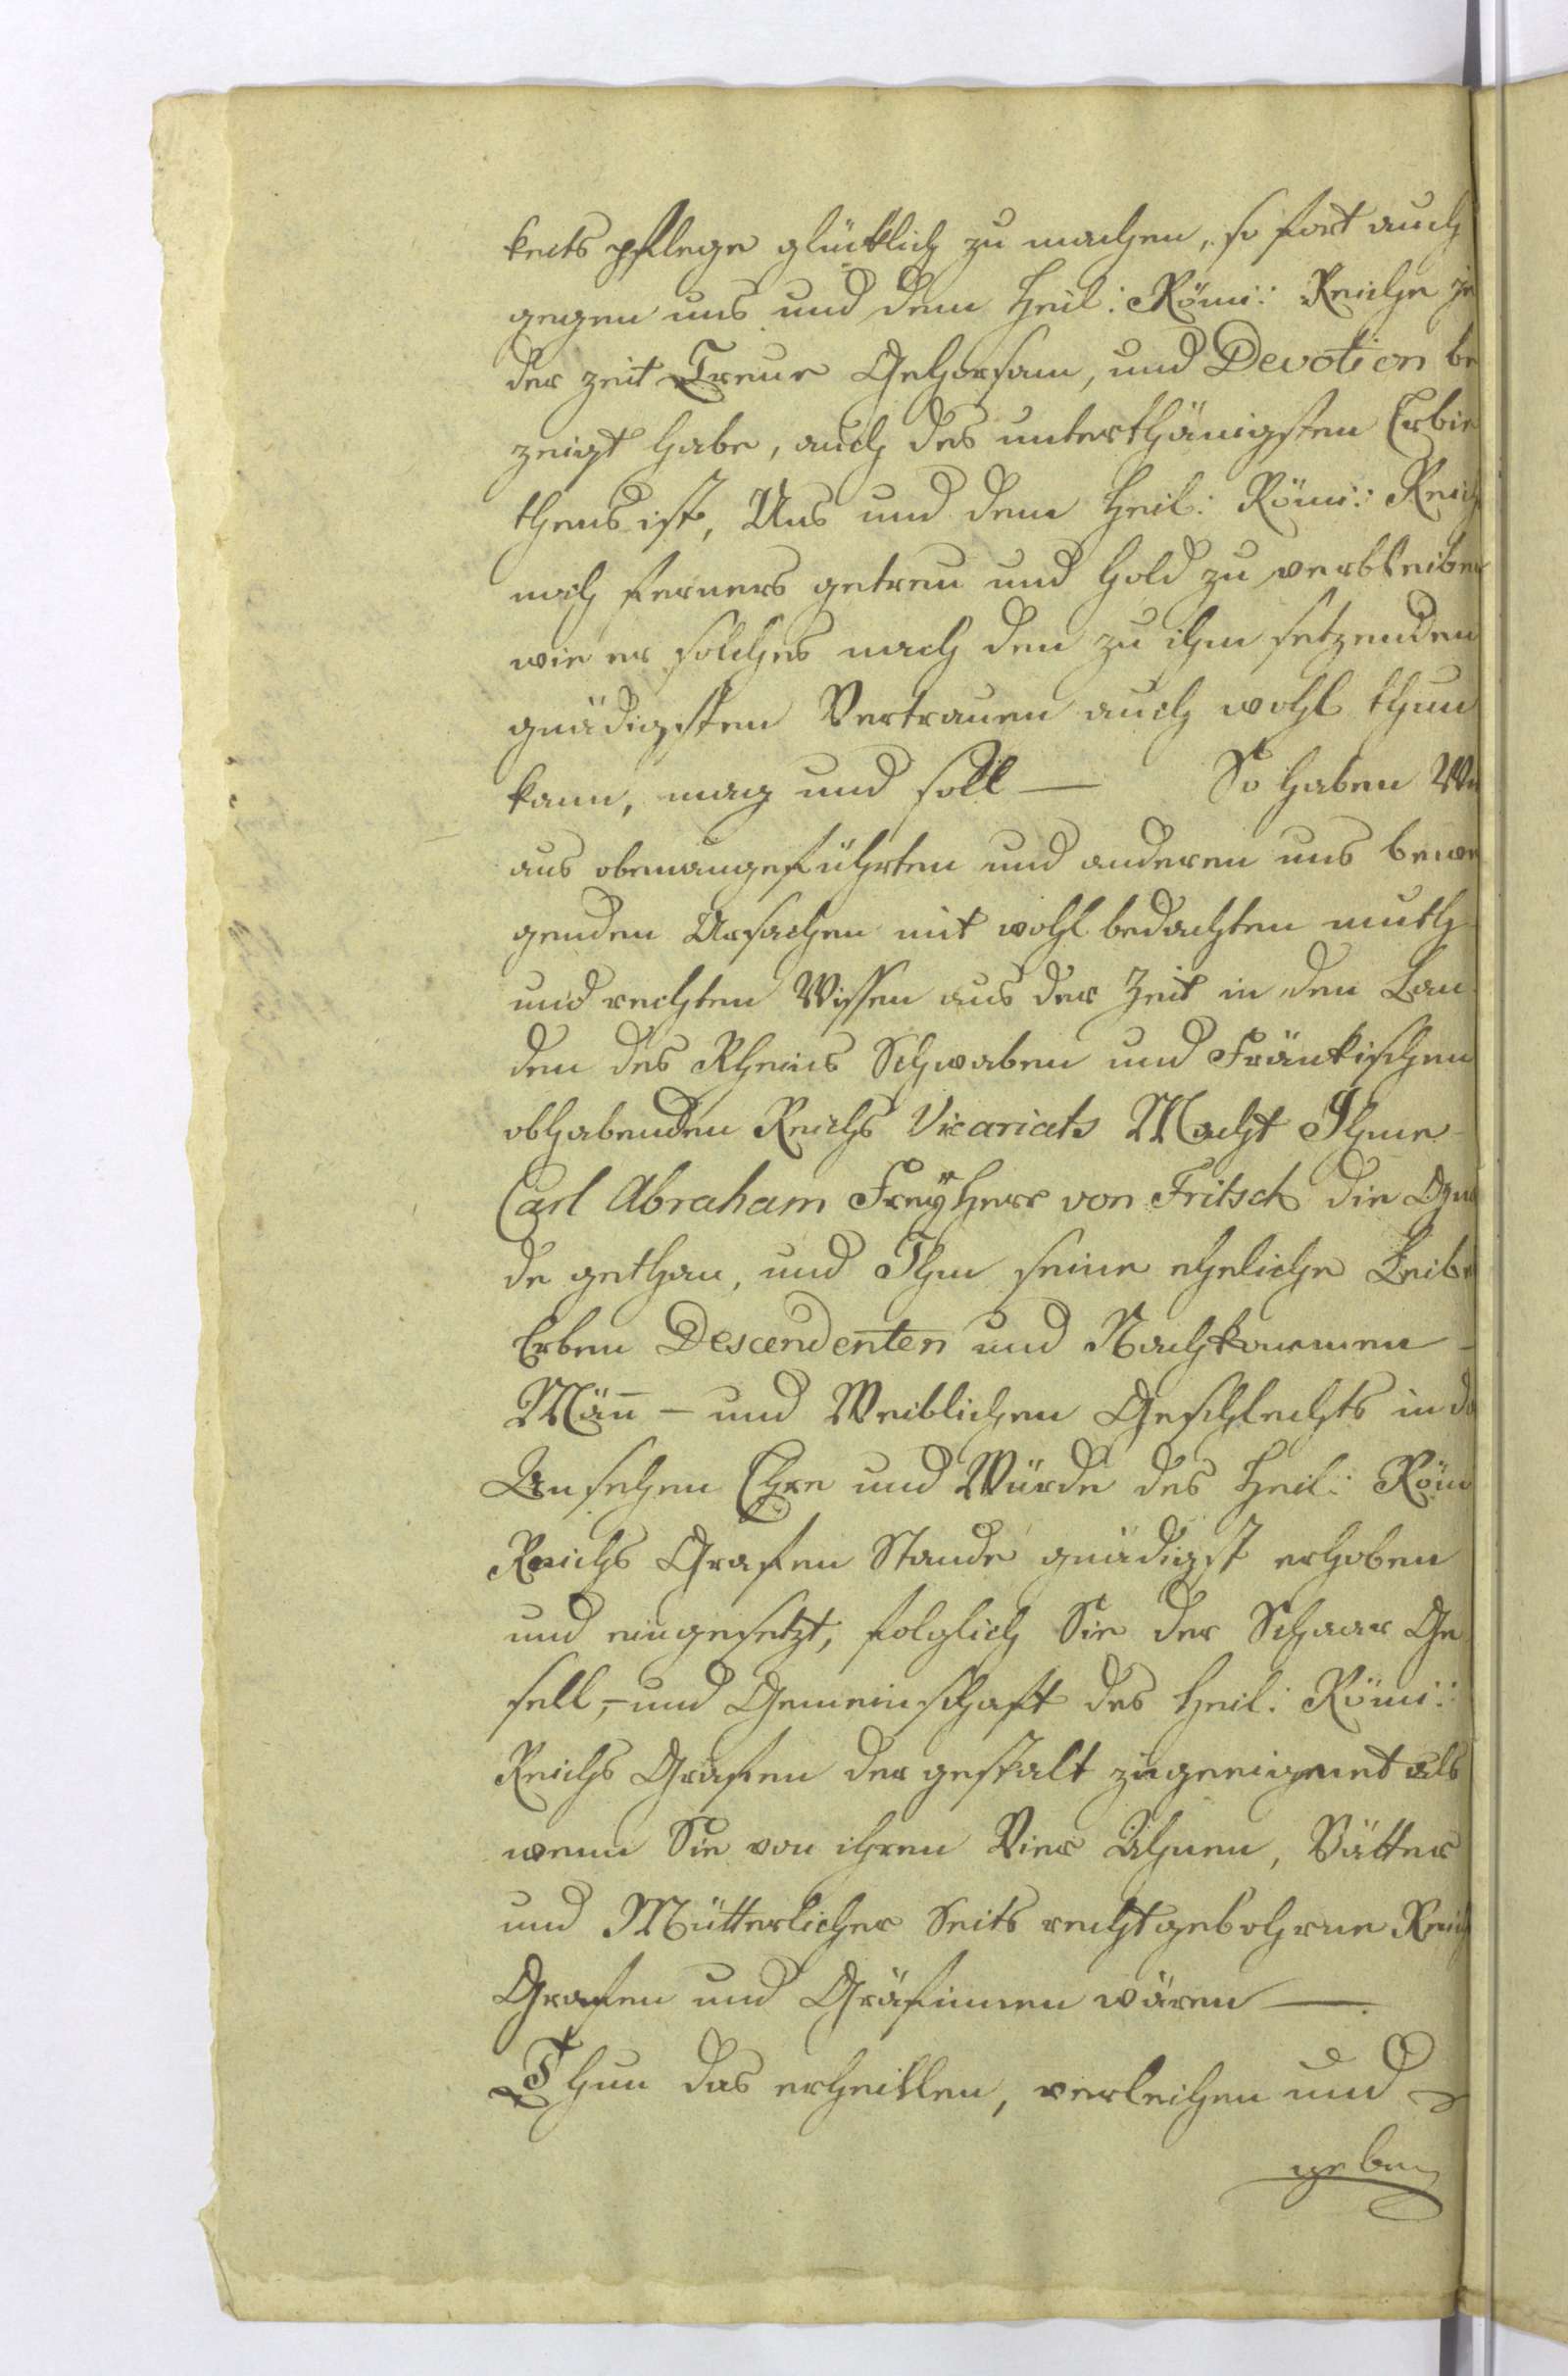 keits pflege glücklich zu machen, so fort auch
gegen uns und dem Heil: Römi: Reiche je
der zeit Treue Gehorsam, und Devotion be
zeigt habe, auch des unterthänigsten Erbie
thens ist, Uns und dem Heil: Römi: Reich
noch ferners getreu und hold zu verbleiben
wie er solches nach den zu ihm setzenden
gnädigsten Vertrauen auch wohl thun
kann, mag und soll — So haben Wir
aus obenangeführten und anderen uns bewe
genden Ursachen mit wohl bedachten muth
und rechten Wissen aus der Zeit in den Lan
den des Rheins Schwaben und Fränkischen
obhabenden Reichs Vicariats Macht Ihme
Carl Abraham Freyherr von Fritsch die Gna
de gethan, und Ihm seine eheliche Leibs
Erben Descendenten und Nachkommen
Mañ - und Weiblichen Geschlechts in das
Ansehen Ehre und Würde des Heil: Röm
Reichs Grafen Stande gnädigst erhoben
und eingesetzt, folglich Sie der Schaar Ge
sell, - und Gemeinschaft des Heil: Römi:
Reichs Grafen der gestalt zugeeignet als
wenn Sie von ihren Vier Ahnen, Vätter
und Mütterlicher Seits recht gebohrne Reichs
Grafen und Gräfinnen wären —
Thun das ertheillen, verleihen und
geben